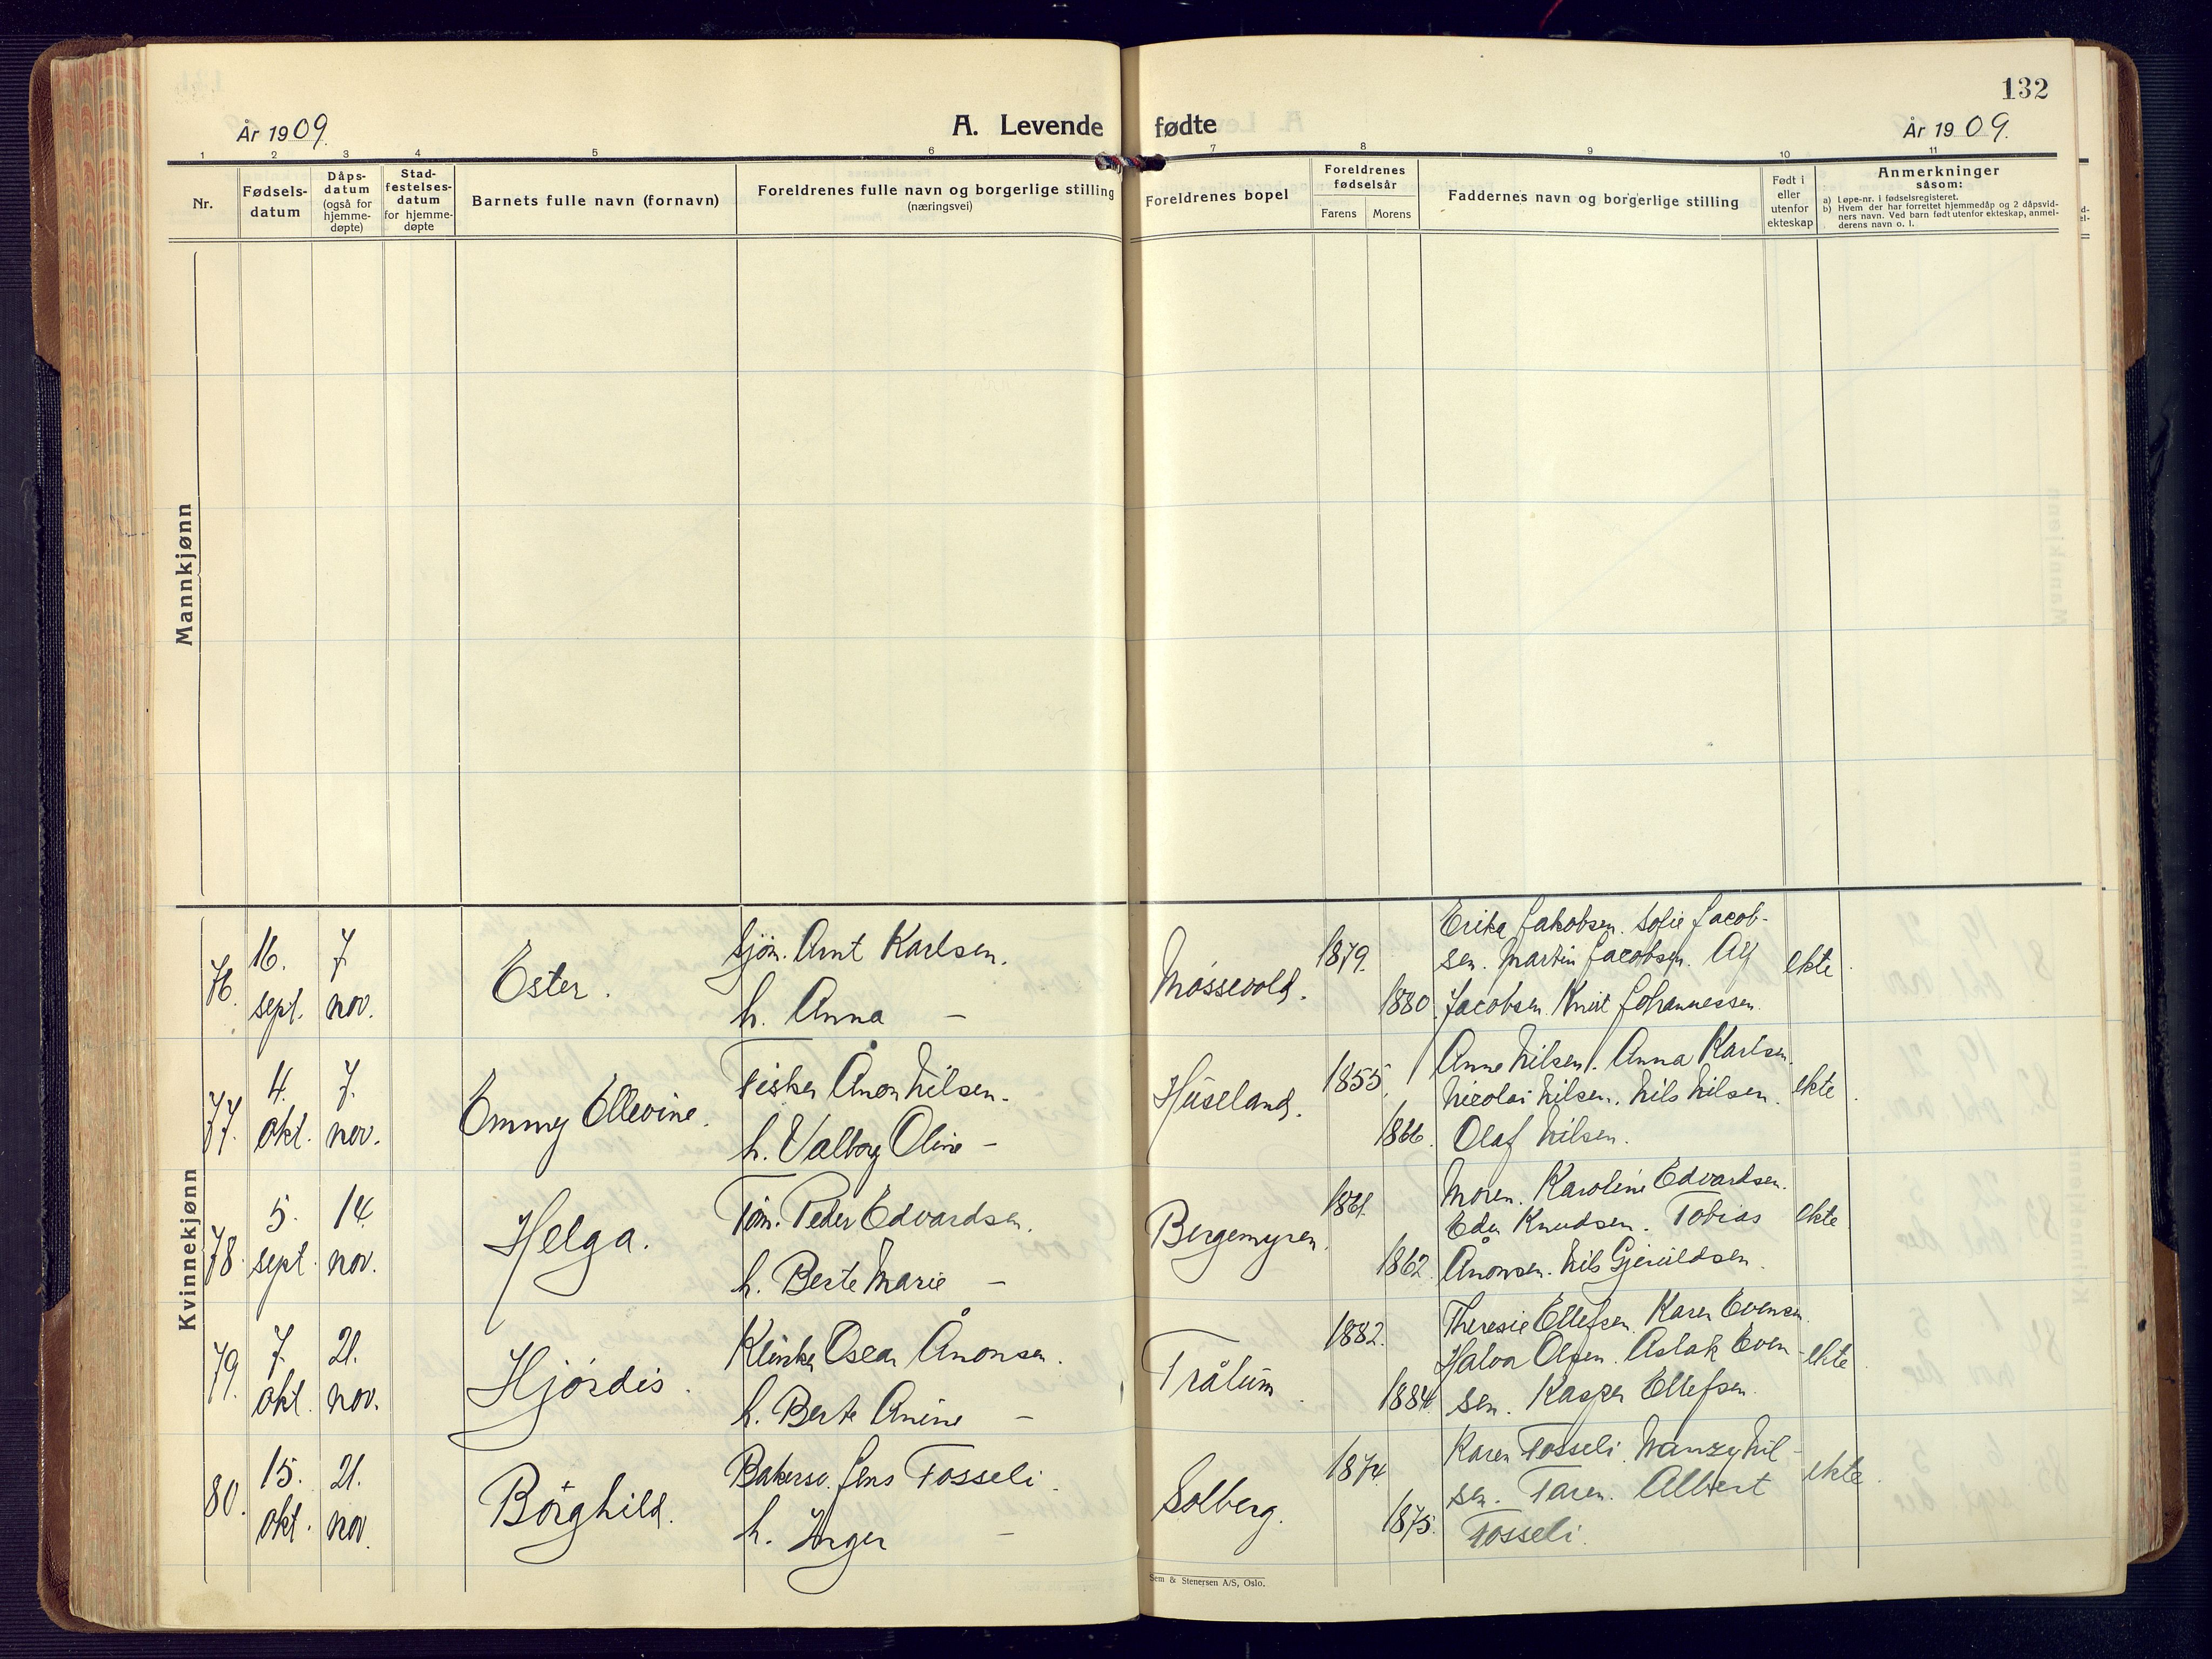 132
År 1909.
A. Levende fødte
År 1909.
1 2 3 4 5 6 7 8 9 10 11
Nr.
Fødsels-
datum
Dåps-
datum
(også for
hjemme-
døpte)
Stad-
festelses-
datum
for hjemme-
døpte
Barnets fulle navn (fornavn)
Foreldrenes fulle navn og borgerlige stilling
(næringsvei)
Foreldrenes bopel
Foreldrenes
fødselsår
Farens
Morens
Faddernes navn og borgerlige stilling
Født i
eller
utenfor
ekteskap
Anmerkninger
såsom:
a) Løpe-nr. i fødselsregisteret.
b) Hvem der har forrettet hjemmedåp og 2 dåpsvid-
ners navn. Ved barn født utenfor ekteskap, anmel-
derens navn o. l.
Mannkjønn
Kvinnekjønn
76.
16.
sept.
7
nov.
Ester.
Sjøm. Arnt Karlsen.
h. Anna —
Møssevold.
1879.
1880.
Erika Jakobsen. Sofie Jacob-
sen. Martin Jacobsen. Alf
Jacobsen. Knut Johannessen.
ekte
77.
4.
okt.
7.
nov.
Emmy Ellevine.
Fisker Ånon Nilsen.
h. Valborg Oline —
Huseland.
1855.
1866.
Anne Nilsen. Anna Karlsen.
Nicolai Nilsen. Nils Nilsen.
Olaf Nilsen.
ekte
78.
5.
sept.
14.
nov.
Helga.
Tøm. Peder Edvardsen.
h. Berte Marie —
Bergemyren.
1861.
1862.
Moren. Karoline Edvardsen.
Knudsen. Tobias
Ånonsen. Nils Gjeruldsen.
ekte
79.
7.
okt.
21.
nov.
Hjørdis.
Klinker Oscar Ånonsen.
h. Berte Anine —
Trålum.
1882.
1884.
Theresie Ellefsen. Karen Evensen.
Halvor Olsen. Aslak Even-
sen. Kasper Ellefsen.
ekte
80.
15.
okt.
21.
nov.
Borghild.
Bakersv. Jens Fosseli.
h. Inger —
Solberg.
1874.
1875.
Karen Fosseli. Nil-
sen. Faren. Albert
Fosseli.
ekte.
Sem & Stenersen A/S, Oslo.